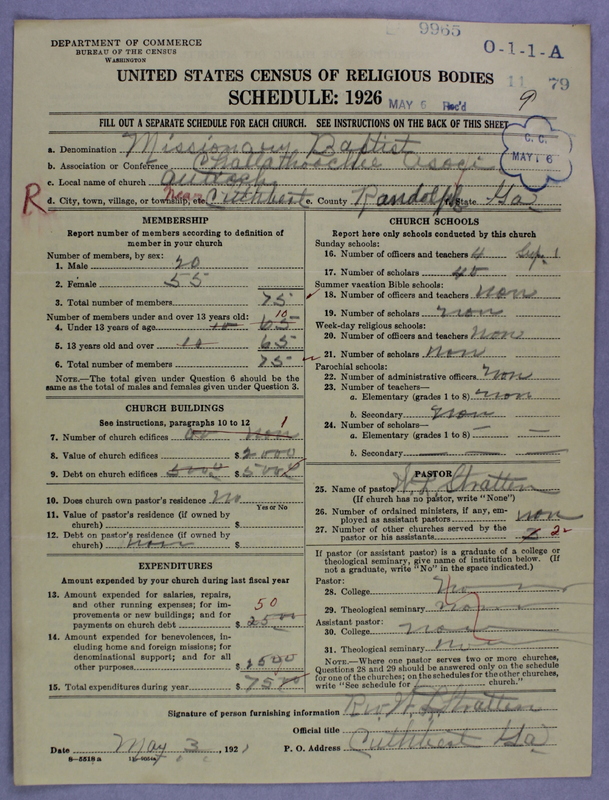 9965
O-1-1-A
11 79
DEPARTMENT OF COMMERCE
BUREAU OF THE CENSUS
WASHINGTON
UNITED STATES CENSUS OF RELIGIOUS BODIES
SCHEDULE: 1926
MAY 6 Rec'd
9
FILL OUT A SEPARATE SCHEDULE FOR EACH CHURCH. SEE INSTRUCTIONS ON THE BACK OF THIS SHEET
C. C.
MAY 16
a. Denomination Missionary Baptist
b. Association or Conference Challathoochie asogi
c. Local name of church antioch
R d. City, town, village, or township, etc. Near Cuthbert e. County Randolph State Ga
MEMBERSHIP
Report number of members according to definition of
member in your church
Number of members, by sex:
1. Male 20
2. Female 55
3. Total number of members 75
Number of members under and over 13 years old:
4. Under 13 years of age 10 65 10
5. 13 years old and over 10 65
6. Total number of members 75
NOTE.—The total given under Question 6 should be the
same as the total of males and females given under Question 3.
CHURCH BUILDINGS
See instructions, paragraphs 10 to 12
7. Number of church edifices non 1
8. Value of church edifices $ 2000
9. Debt on church edifices 500 $ 500
10. Does church own pastor's residence No
Yes or No
11. Value of pastor's residence (if owned by
church) $
12. Debt on pastor's residence (if owned by
church) non $
EXPENDITURES
Amount expended by your church during last fiscal year
13. Amount expended for salaries, repairs,
and other running expenses; for im-
provements or new buildings; and for
payments on church debt $ 2500 50
14. Amount expended for benevolences, in-
cluding home and foreign missions; for
denominational support; and for all
other purposes $ 2500
15. Total expenditures during year $ 75
CHURCH SCHOOLS
Report here only schools conducted by this church
Sunday schools:
16. Number of officers and teachers 4 Sup. 1
17. Number of scholars 40
Summer vacation Bible schools:
18. Number of officers and teachers non
19. Number of scholars non
Week-day religious schools:
20. Number of officers and teachers non
21. Number of scholars non
Parochial schools:
22. Number of administrative officers non
23. Number of teachers—
a. Elementary (grades 1 to 8) non
b. Secondary non
24. Number of scholars—
a. Elementary (grades 1 to 8) —
b. Secondary — — —
PASTOR
25. Name of pastor W. L. Stratten
(If church has no pastor, write "None")
26. Number of ordained ministers, if any, em-
ployed as assistant pastors non
27. Number of other churches served by the
pastor or his assistants 2
If pastor (or assistant pastor) is a graduate of a college or
theological seminary, give name of institution below. (If
not a graduate, write "No" in the space indicated.)
Pastor:
28. College no
29. Theological seminary no
Assistant pastor:
30. College non
31. Theological seminary no
NOTE.—Where one pastor serves two or more churches,
Questions 28 and 29 should be answered only on the schedule
for one of the churches; on the schedules for the other churches,
write "See schedule for church."
Signature of person furnishing information Rev. W. L. Stratten
Official title
Date May 3, 192
P. O. Address Cuthbert Ga
8—5518a